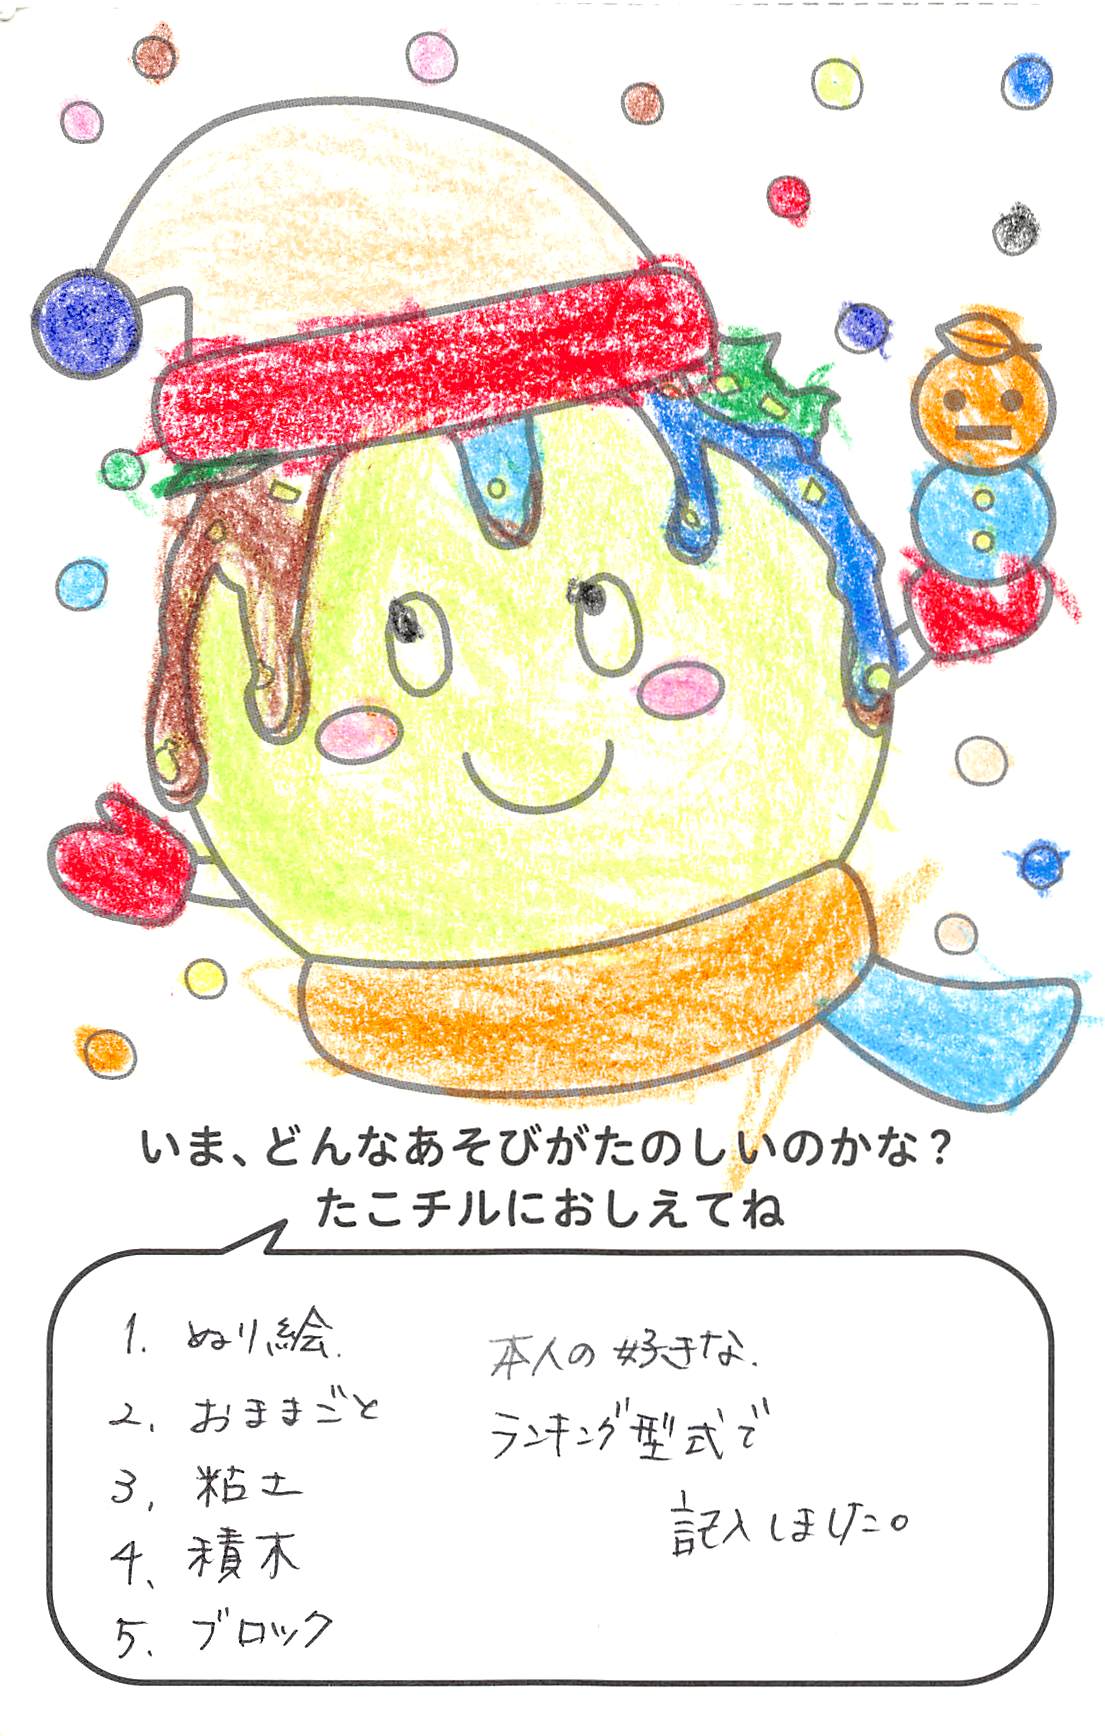 いま、どんなあそびがたのしいのかな？
たこチルにおしえてね
1. ぬり絵.
2. おままごと
3. 粘土
4. 積木
5. ブロック
本人の好きな.
ランキング型式で
記入しました。